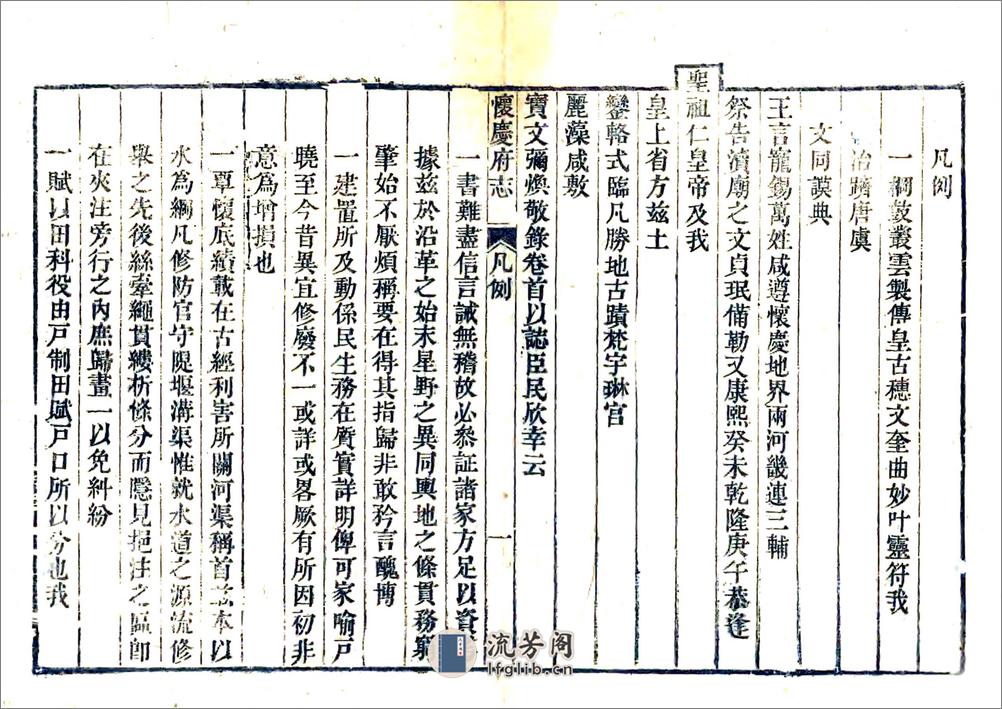 凡例
一綱效叢雲製傳皇古穗文奎曲妙叶靈符我
治躋唐虞
文同謨典
王言寵錫萬姓咸遵懷慶地界兩河畿連三輔
祭告瀆廟之文貞珉備勒又康熙癸未乾隆庚午恭逢
聖祖仁皇帝及我
皇上省方茲土
鑾輅式臨凡勝地古蹟梵宇琳宮
麗藻咸敷
寶文彌煥敬錄卷首以誌臣民欣幸云
懷慶府志 凡例 一
一書難盡信言誠無稽故必參証諸家方足以資
據茲於沿革之始末星野之異同輿地之條貫務窮
肇始不厭煩稱要在得其指歸非敢矜言醜博
一建置所及動係民生務在質實詳明俾可家喻戸
曉至今昔異宜修廢不一或詳或畧厥有所因初非
意為增損也
一覃懷底績載在古經利害所關河渠稱首茲本以
水為綱凡修防官守隄堰溝渠惟就水道之源流修
舉之先後絲牽繩貫縷析條分而隱見挹注之區卽
在夾注旁行之內庶歸畫一以免糾紛
一賦以田科役由戸制田賦戸口所以分也我
流芳阁
lfglib.cn